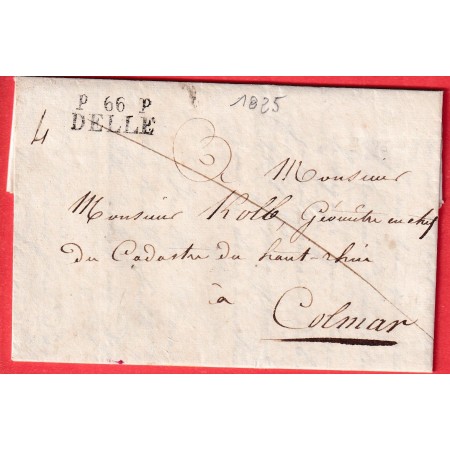 P 66 P
DELLE
1825
4
à Monsieur
Monsieur Kolb, Géomêtre en chef
du Cadastre du haut-rhin
à
Colmar